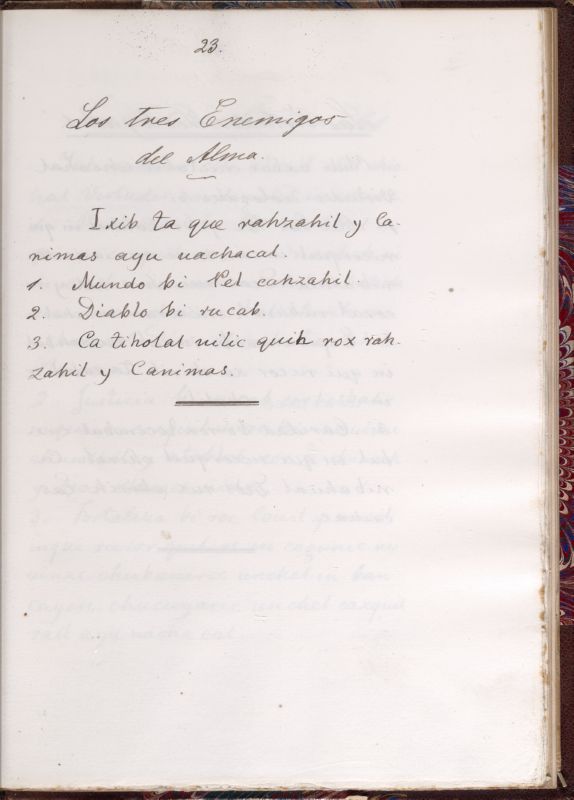 23.
Los tres Enemigos
del Alma.
Ixib ta que rahzahil y Ca-
nimas ayu uachacal.
1. Mundo bi Pel cahzahil.
2. Diablo bi rucab.
3. Ca tiholal nilic quih rox rah-
zahil y Canimas.